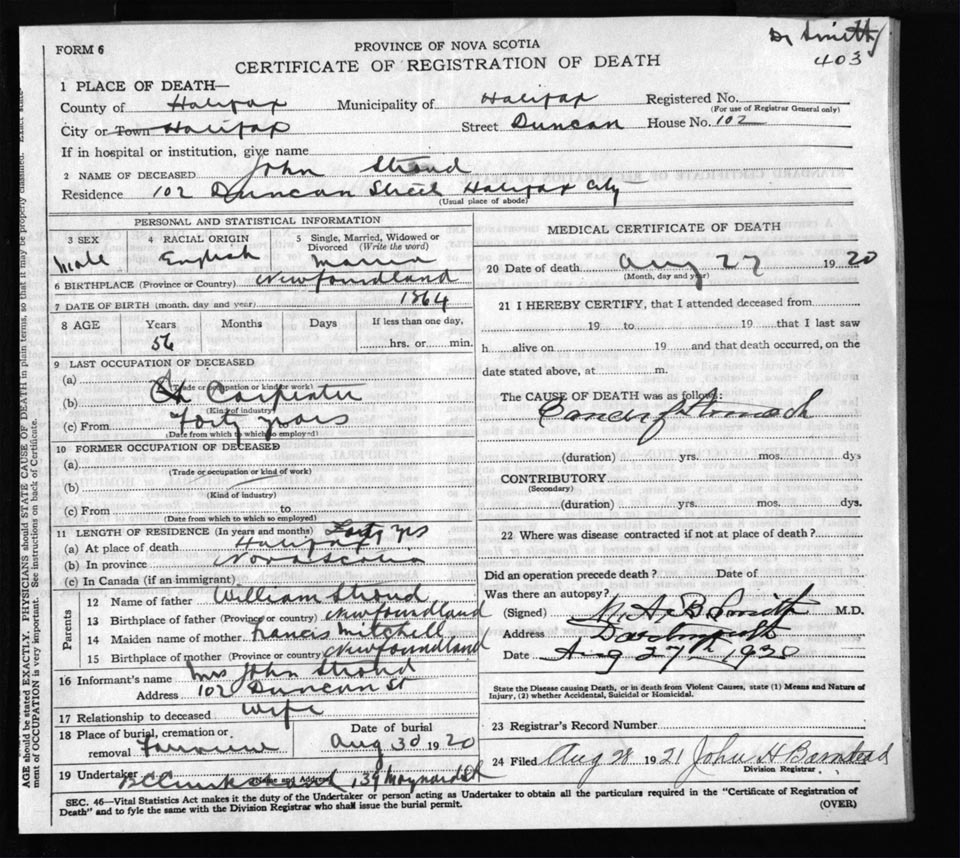 Dr Smith
403
FORM 6
PROVINCE OF NOVA SCOTIA
CERTIFICATE OF REGISTRATION OF DEATH
1 PLACE OF DEATH—
County of Halifax Municipality of Halifax Registered No.
(For use of Registrar General only)
City or Town Halifax Street Duncan House No. 102
If in hospital or institution, give name
2 NAME OF DECEASED John Stroud
Residence 102 Duncan Street Halifax City
(Usual place of abode)
PERSONAL AND STATISTICAL INFORMATION
3 SEX 4 RACIAL ORIGIN 5 Single, Married, Widowed or Divorced (Write the word)
Male English
6 BIRTHPLACE (Province or Country) Newfoundland
7 DATE OF BIRTH (month, day and year) 1864
8 AGE Years Months Days If less than one day,
56 hrs. or min.
9 LAST OCCUPATION OF DECEASED
(a)
(Trade or occupation or kind of work)
(b) Carpenter
(Kind of industry)
(c) From Forty years
(Date from which to which so employed)
10 FORMER OCCUPATION OF DECEASED
(a)
(Trade or occupation or kind of work)
(b)
(Kind of industry)
(c) From to
(Date from which to which so employed)
11 LENGTH OF RESIDENCE (In years and months) Forty yrs
(a) At place of death Halifax
(b) In province Nova Scotia
(c) In Canada (if an immigrant)
Parents
12 Name of father William Stroud
13 Birthplace of father (Province or country) Newfoundland
14 Maiden name of mother Francis Mitchell
15 Birthplace of mother (Province or country) Newfoundland
16 Informant's name Mrs John Stroud
Address 102 Duncan St
17 Relationship to deceased Wife
18 Place of burial, cremation or Date of burial
removal Fairview Aug 30 1920
19 Undertaker 139 Maynard St
(Name and Address)
MEDICAL CERTIFICATE OF DEATH
20 Date of death Aug 27 1920
(Month, day and year)
21 I HEREBY CERTIFY, that I attended deceased from
19 to 19 that I last saw
h alive on 19 and that death occurred, on the
date stated above, at m.
The CAUSE OF DEATH was as follows:
Cancer of Stomach
(duration) yrs. mos. dys
CONTRIBUTORY
(Secondary)
(duration) yrs. mos. dys.
22 Where was disease contracted if not at place of death?
Did an operation precede death? Date of
Was there an autopsy?
(Signed) M. A. B. Smith M.D.
Address Dartmouth
Date Aug 27th 1920
State the Disease causing Death, or in death from Violent Causes, state (1) Means and Nature of
Injury, (2) whether Accidental, Suicidal or Homicidal.
23 Registrar's Record Number
24 Filed Aug 28 1921 John H Barnstead
Division Registrar
SEC. 46—Vital Statistics Act makes it the duty of the Undertaker or person acting as Undertaker to obtain all the particulars required in the "Certificate of Registration of
Death" and to fyle the same with the Division Registrar who shall issue the burial permit.
(OVER)
AGE should be stated EXACTLY. PHYSICIANS should STATE CAUSE OF DEATH in plain terms, so that it may be properly classified. Exact
ment of OCCUPATION is very important. See instructions on back of Certificate.